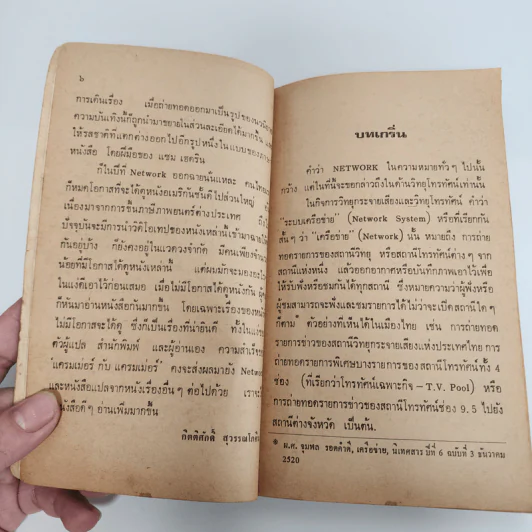 ๖
การเดินเรื่อง เมื่อถ่ายทอดออกมาเป็นรูปของนวนิยาย
ความบันเทิงนี้ก็ถูกนำมาขยายในส่วนละเอียดได้มากขึ้น
ให้รสชาติที่แตกต่างออกไปอีกรูปหนึ่งในแบบของ
หนังสือ โดยฝีมือของ แซม เฮดริน
ก็ในปีที่ Network ออกฉายนั่นแหละ
ก็หมดโอกาสที่จะได้ดูหนังอเมริกันชั้นดีไปส่วนใหญ่
เนื่องมาจากการขึ้นภาษีภาพยนตร์ต่างประเทศ
ปัจจุบันจะมีการนำวิดีโอเทปของหนังเหล่านี้เข้ามาฉาย
กันอยู่บ้าง ก็ยังคงอยู่ในแวดวงจำกัด มีคนเพียงจำนวน
น้อยที่มีโอกาสได้ดูหนังเหล่านี้ แต่ผมมักจะมอง
ในแง่ดีเอาไว้ก่อนเสมอ เมื่อไม่มีโอกาสได้ดูหนังกัน
ก็หันมาอ่านหนังสือกันมากขึ้น โดยเฉพาะเรื่องของหนัง
ไม่มีโอกาสจะได้ดู ซึ่งก็เป็นเรื่องที่น่ายินดี ทั้งในแง่
ตัวผู้แปล สำนักพิมพ์ และผู้อ่านเอง ความสำเร็จ
"แครมเมอร์ กับ แครมเม่อร์" คงจะส่งผลมายัง Network
และหนังสือแปลจากหนังเรื่องอื่นๆ ต่อไปด้วย เราจะ
หนังสือดีๆ อ่านเพิ่มมากขึ้น
กิตติศักดิ์ สุวรรณโภคิน
บทเกริ่น
คำว่า NETWORK ในความหมายทั่วๆ ไปนั้น
กว้าง แต่ในที่นี้จะขอกล่าวถึงในด้านวิทยุโทรทัศน์เท่านั้น
ในกิจการวิทยุกระจายเสียงและวิทยุโทรทัศน์ คำว่า
"ระบบเครือข่าย" (Network System) หรือที่เรียกกัน
สั้นๆ ว่า "เครือข่าย" (Network) นั้น หมายถึง การถ่าย
ทอดรายการของสถานีวิทยุ หรือสถานีโทรทัศน์ต่างๆ จาก
สถานีแห่งหนึ่ง แล้วออกอากาศหรือบันทึกภาพเอาไว้เพื่อ
ให้รับฟังหรือชมกันได้ทุกสถานี ซึ่งหมายความว่าผู้ฟังหรือ
ผู้ชมสามารถจะฟังและชมรายการได้ไม่ว่าจะเปิดสถานีใดๆ
ก็ตาม* ตัวอย่างที่เห็นได้ในเมืองไทย เช่น การถ่ายทอด
รายการข่าวของสถานีวิทยุกระจายเสียงแห่งประเทศไทย การ
ถ่ายทอดรายการพิเศษบางรายการของสถานีโทรทัศน์ทั้ง 4
ช่อง (ที่เรียกว่าโทรทัศน์เฉพาะกิจ – T.V. Pool) หรือ
การถ่ายทอดรายการข่าวของสถานีโทรทัศน์ช่อง 9.5 ไปยัง
สถานีต่างจังหวัด เป็นต้น.
* ผ.ศ. จุมพล รอดคำดี, เครือข่าย, นิเทศสาร ปีที่ 6 ฉบับที่ 3 ธันวาคม
2520